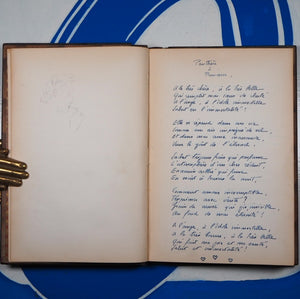 à
A la très chère, à la très belle
Qui remplit mon cœur de clarté
A l'ange, à l'idole immortelle,
Salut en l'immortalité !
Elle se répand dans ma vie
Comme un air imprégné de sel,
Et dans mon âme inassouvie
Verse le goût de l'éternel.
Sachet toujours frais qui parfume
L'atmosphère d'un cher réduit,
Encensoir oublié qui fume
En secret à travers la nuit,
Comment amour incorruptible,
T'exprimer avec vérité ?
Grain de musc qui gis, invisible,
Au fond de mon éternité !
A l'ange, à l'idole immortelle,
A la très bonne, à la très belle
Qui fait ma joie et ma santé,
Salut en l'immortalité !